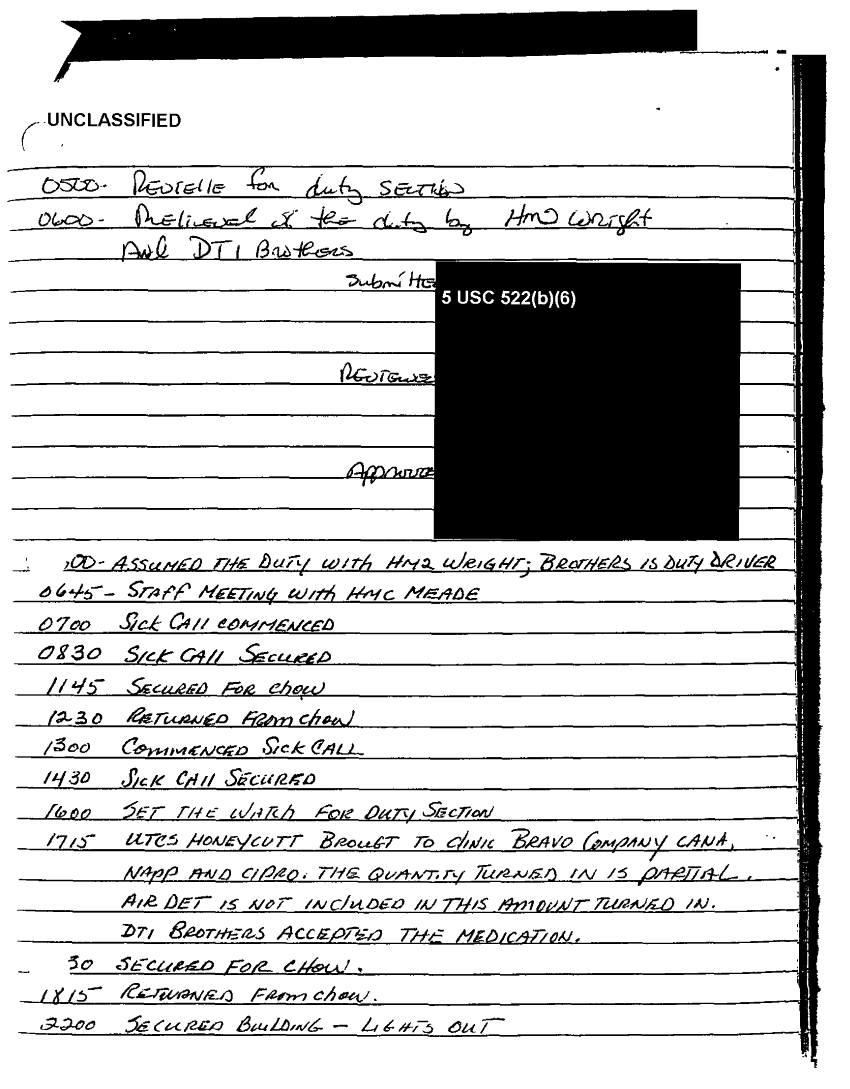 UNCLASSIFIED
0500- Reveille for duty section
0600- of the duty by HM2 Wright
And DT1 Brothers
Submitte
5 USC 522(b)(6)
Reviewed
Approve
00- ASSUMED THE DUTY WITH HM2 WRIGHT; BROTHERS IS DUTY DRIVER
0645- STAFF MEETING WITH HMC MEADE
0700 SICK CALL COMMENCED
0830 SICK CALL SECURED
1145 SECURED FOR CHOW
1230 RETURNED FROM CHOW
1300 COMMENCED SICK CALL
1430 SICK CALL SECURED
1600 SET THE WATCH FOR DUTY SECTION
1715 UTCS HONEYCUTT BROUGT TO CLINIC BRAVO COMPANY CANA,
NAPP AND CIPRO. THE QUANTITY TURNED IN IS PARTIAL.
AIR DET IS NOT INCLUDED IN THIS AMOUNT TURNED IN.
DT1 BROTHERS ACCEPTED THE MEDICATION.
30 SECURED FOR CHOW.
1815 RETURNED FROM CHOW.
2200 SECURED BUILDING - LIGHTS OUT